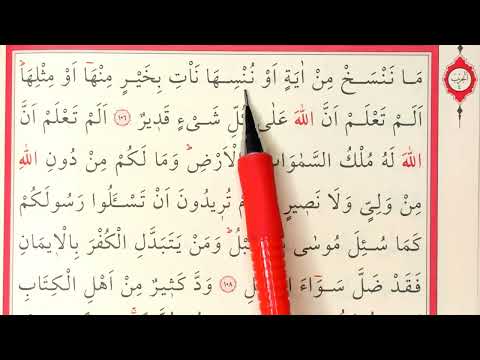 مَا نَنْسَخْ مِنْ اٰيَةٍ اَوْ نُنْسِهَا نَأْتِ بِخَيْرٍ مِنْهَٓا اَوْ مِثْلِهَاۜ
اَلَمْ تَعْلَمْ اَنَّ اللّٰهَ عَلٰى كُلِّ شَيْءٍ قَد۪يرٌ ﴿١٠٦﴾ اَلَمْ تَعْلَمْ اَنَّ
اللّٰهَ لَهُ مُلْكُ السَّمٰوَاتِ وَالْاَرْضِۜ وَمَا لَكُمْ مِنْ دُونِ اللّٰهِ
مِنْ وَلِيٍّ وَلَا نَص۪يرٍ تُر۪يدُونَ اَنْ تَسْـَٔلُوا رَسُولَكُمْ
كَمَا سُئِلَ مُوسٰى وَمَنْ يَتَبَدَّلِ الْكُفْرَ بِالْا۪يمَانِ
فَقَدْ ضَلَّ سَوَٓاءَ ﴿١٠٨﴾ وَدَّ كَث۪يرٌ مِنْ اَهْلِ الْكِتَابِ